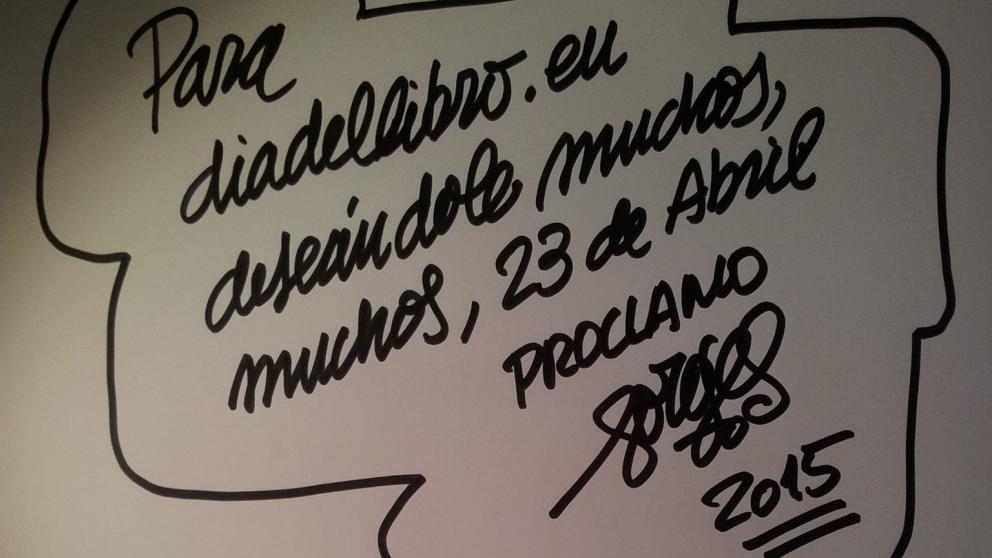 Para
diadellibro.eu
deseándole muchos,
muchos, 23 de Abril
PROCLAMO
2015